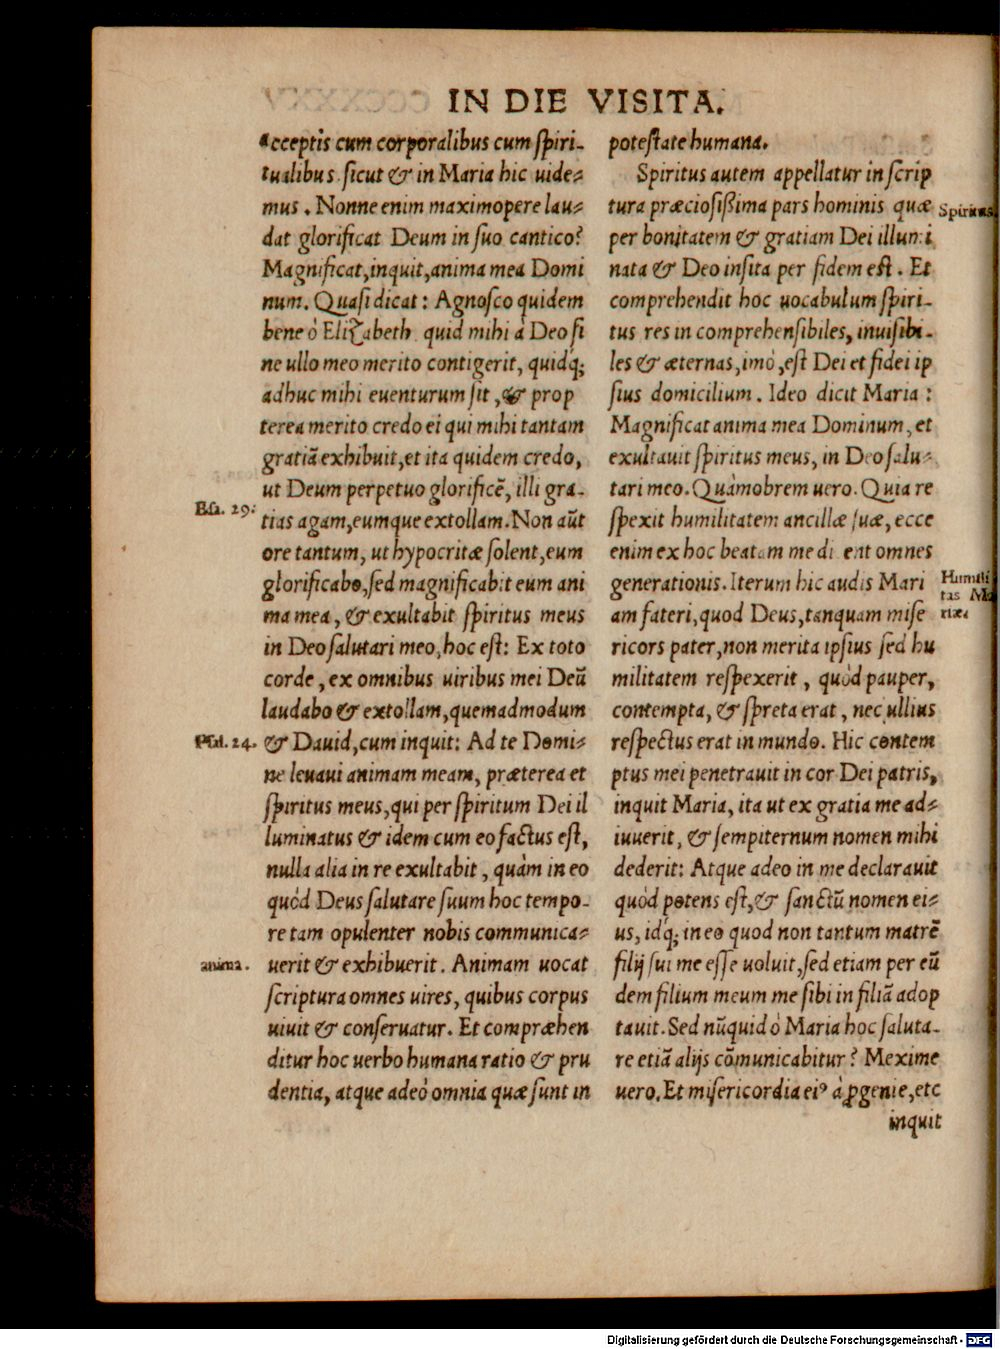 IN DIE VISITA.
acceptis cum corporalibus cum ſpiri-
tualibus. ſicut & in Maria hic uide⸗
mus. Nonne enim maximopere lau⸗
dat glorificat Deum in ſuo cantico?
Magnificat, inquit, anima mea Domi
num. Quaſi dicat: Agnoſco quidem
bene ò Elizabeth quid mihi à Deo ſi
ne ullo meo merito contigerit, quidq́;
adhuc mihi euenturum ſit, & prop
terea merito credo ei qui mihi tantam
gratiã exhibuit, et ita quidem credo,
ut Deum perpetuo glorificẽ, illi gra-
Eſi. 29:
tias agam, eumque extollam. Non aũt
ore tantum, ut hypocritæ ſolent, eum
glorificabo, ſed magnificabit eum ani
ma mea, & exultabit ſpiritus meus
in Deo ſalutari meo, hoc eſt: Ex toto
corde, ex omnibus uiribus mei Deũ
laudabo & extollam, quemadmodum
Pſal. 24.
& Dauid, cum inquit: Ad te Domi⸗
ne leuaui animam meam, præterea et
ſpiritus meus, qui per ſpiritum Dei il
luminatus & idem cum eo factus eſt,
nulla alia in re exultabit, quàm in eo
quòd Deus ſalutare ſuum hoc tempo-
re tam opulenter nobis communica⸗
anima.
uerit & exhibuerit. Animam uocat
ſcriptura omnes uires, quibus corpus
uiuit & conſeruatur. Et compræhen
ditur hoc uerbo humana ratio & pru
dentia, atque adeò omnia quæ ſunt in
poteſtate humana.
Spiritus autem appellatur in ſcrip
tura præcioſißima pars hominis quæ
Spiritus.
per bonitatem & gratiam Dei illumi
nata & Deo inſita per fidem eſt. Et
comprehendit hoc uocabulum ſpiri-
tus res in comprehenſibiles, inuiſibi-
les & æternas, imò, eſt Dei et fidei ip
ſius domicilium. Ideo dicit Maria:
Magnificat anima mea Dominum, et
exultauit ſpiritus meus, in Deo ſalu⸗
tari meo. Quàmobrem uero. Quia re
ſpexit humilitatem ancillæ ſuæ, ecce
enim ex hoc beatam me di ent omnes
generationis. Iterum hic audis Mari
Humili
tas Ma
riæ
am fateri, quod Deus, tanquam miſe
ricors pater, non merita ipſius ſed hu
militatem reſpexerit, quòd pauper,
contempta, & ſpreta erat, nec ullius
reſpectus erat in mundo. Hic contem
ptus mei penetrauit in cor Dei patris,
inquit Maria, ita ut ex gratia me ad⸗
iuuerit, & ſempiternum nomen mihi
dederit: Atque adeo in me declarauit
quòd potens eſt, & ſanctũ nomen ei⸗
us, idq́; in eo quod non tantum matrẽ
filij ſui me eſſe uoluit, ſed etiam per eũ
dem filium meum me ſibi in filiã adop
tauit. Sed nũquid ò Maria hoc ſaluta-
re etiã alijs cõmunicabitur? Mexime
uero. Et miſericordia eiꝰ à ꝓgenie, etc
inquit
Digitalisierung gefördert durch die Deutsche Forschungsgemeinschaft - DFG